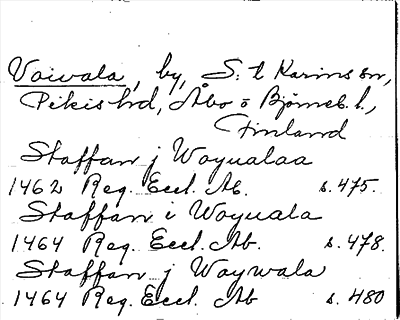 Vaivala, by, S:t Karins sn,
Pikis hd, Åbo o Björneb. l.,
Finland
Staffan j Woyualaa
1462 Reg. Eccl. Ab. s. 475.
Staffan i Woyuala
1464 Reg. Eccl. Ab. s. 478.
Staffan j Waywala
1464 Reg. Eccl. Ab s. 480